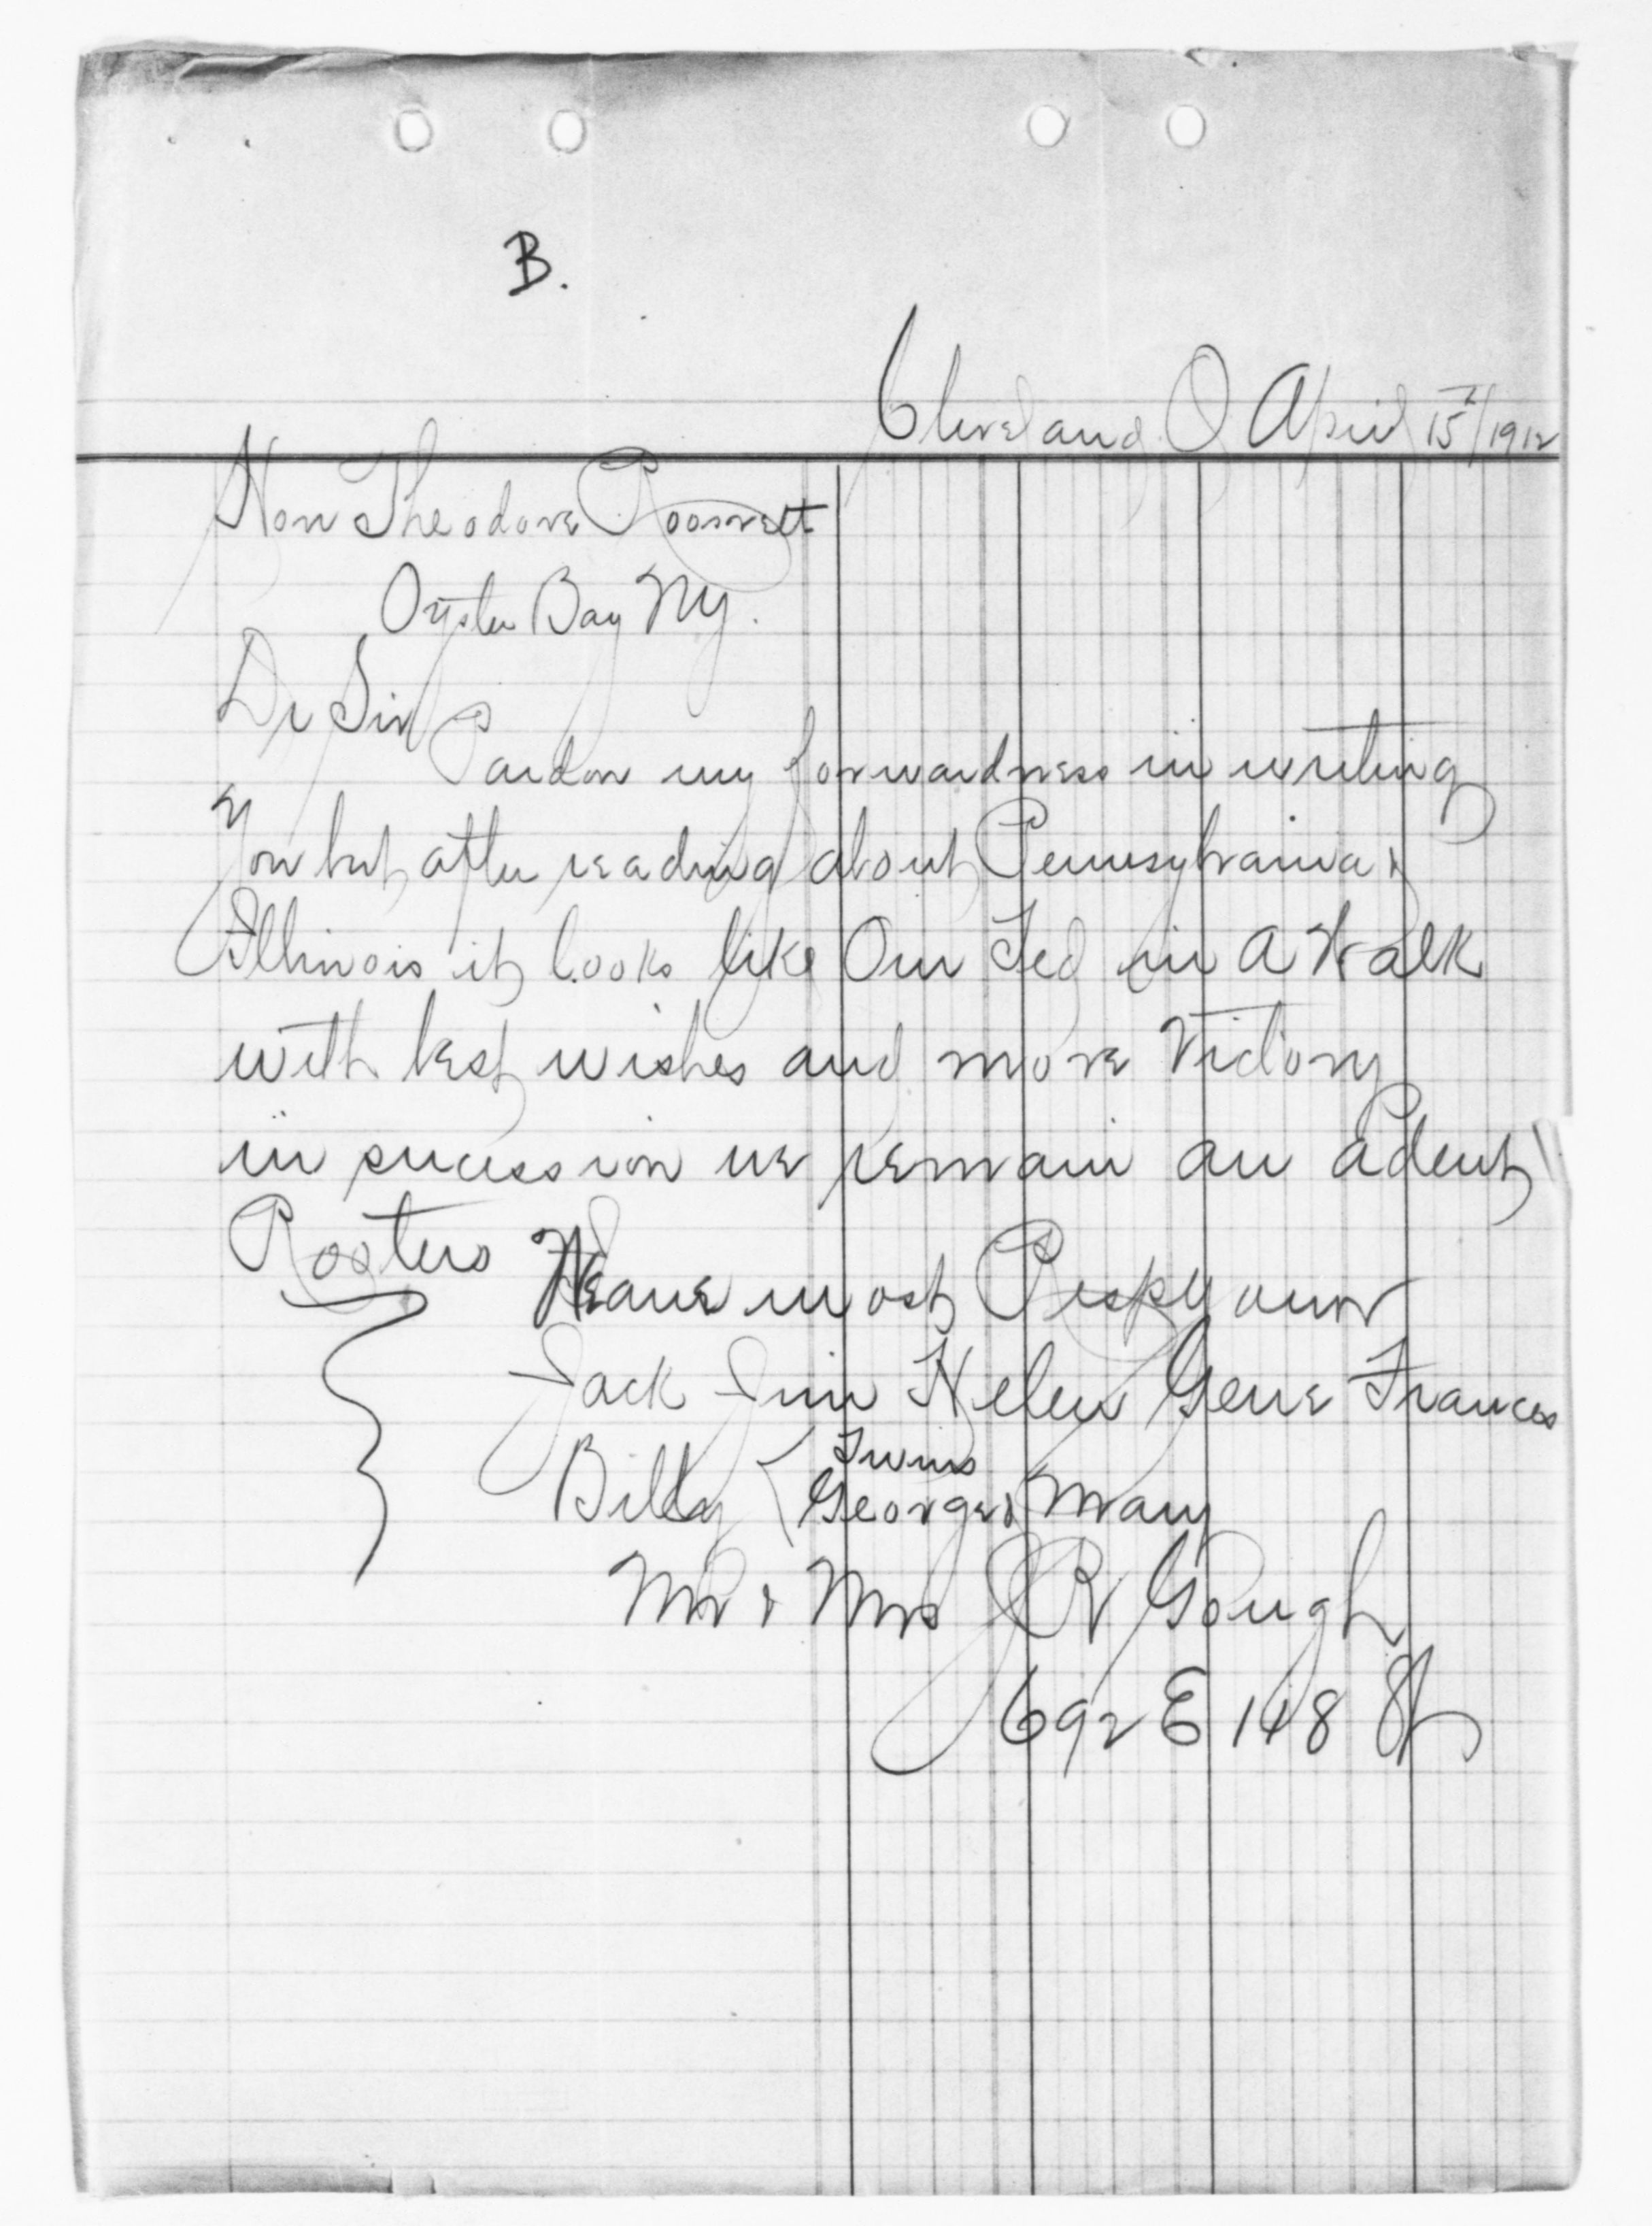 B.
Cleveland O April 15/1912
Hon Theodore Roosvelt
Oyster Bay NY.
Dr Sir
Pardon my forwardness in writing
You but after reading about Pennsylvania &
Illinois it looks like Our Ted in A Walk
with best wishes and more Victory
in sucession we remain an adent
Rooters
We are most Respy your
Jack Jim Helen Gene Frances
Billy Twins
George & Mary
Mr & Mrs J R Gough
692 E 118 St